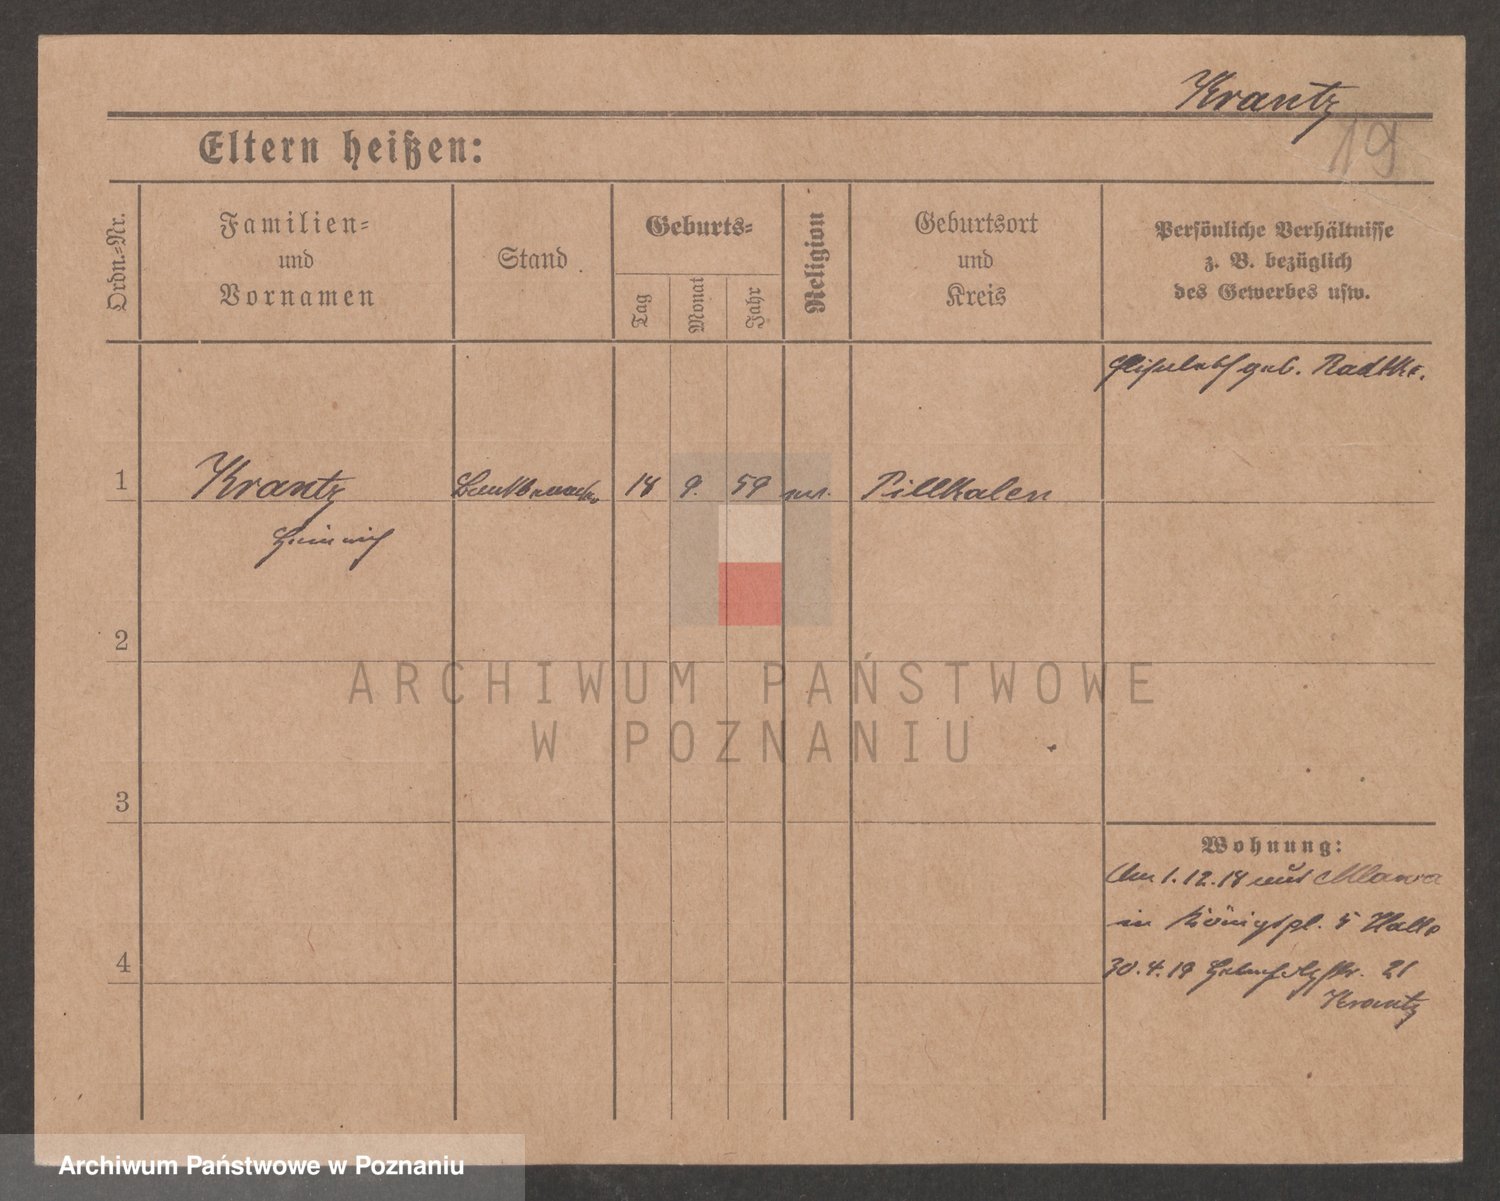 Krantz
19
Eltern heißen:
Ordn.=Nr.
Familien=
und
Vornamen
Stand
Geburts=
Tag
Monat
Jahr
Religion
Geburtsort
und
Kreis
Persönliche Verhältnisse
z. B. bezüglich
des Gewerbes usw.
Elisabeth geb. Radtke.
1
Krantz
Bankbeamter
18
9.
59
ev.
Pillkalen
Heinrich
2
ARCHIWUM PAŃSTWOWE
W POZNANIU
3
Wohnung:
Am 1.12.18 aus Mlawa
in Königspl. 5 Halle
4
30.4.19 21
Krantz
Archiwum Państwowe w Poznaniu